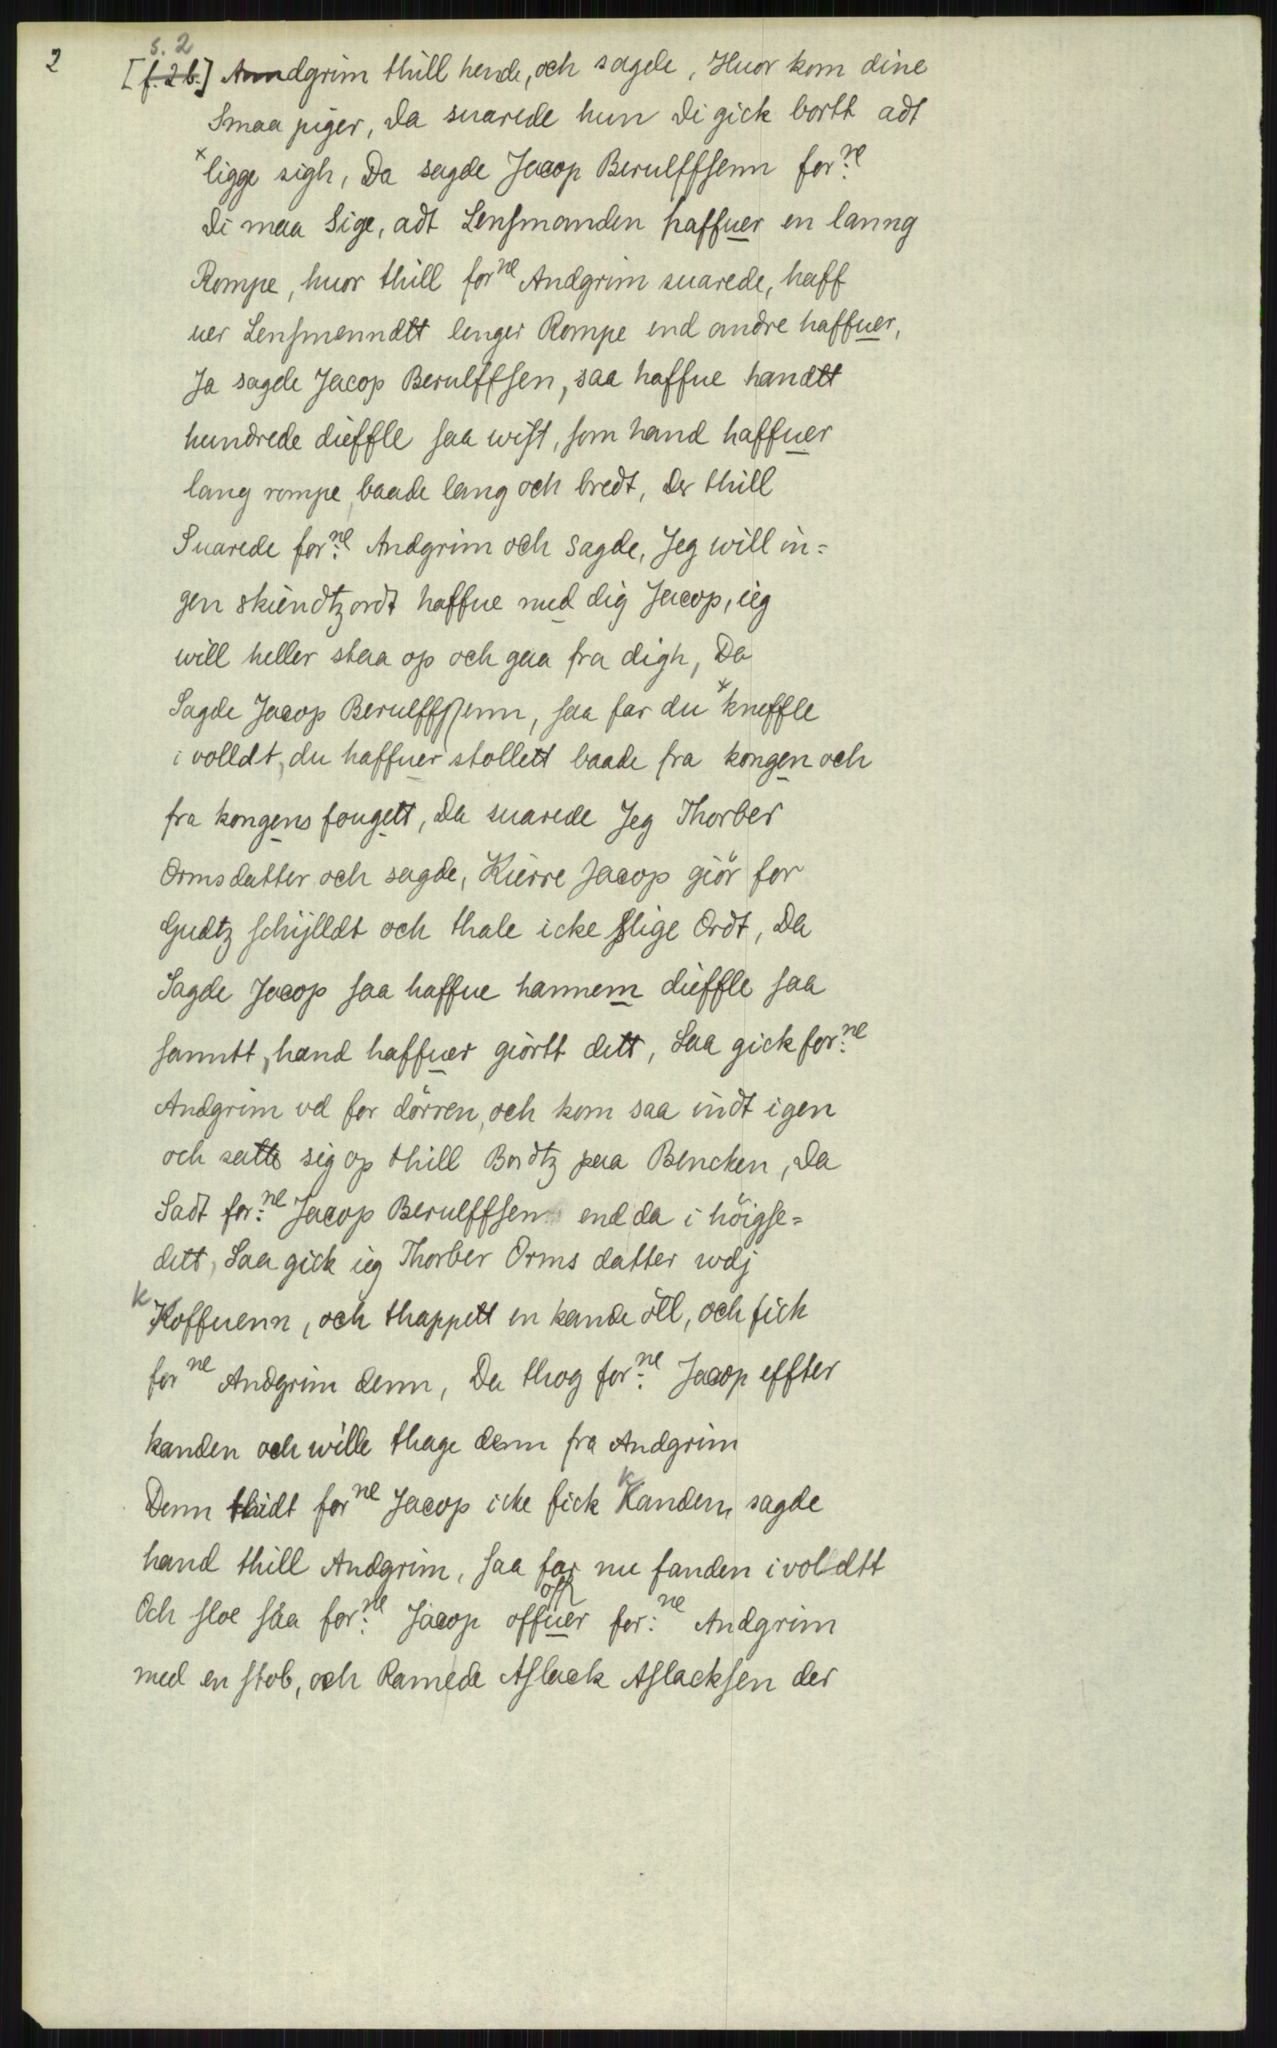 2
s. 2
[f. 2 b.] Anndgrim thill hende, och sagde, Huor kom dine
Smaa piger, Da suarede hun Di gick bortt adt
*ligge sigh, Da sagde Jacop Berulffssenn for:ne
Di maa Sige, adt Lensmanden haffuer en lanng
Rompe, huor thill forne Andgrim suarede, haff
uer Lensmenndtt lenger Rompe end andre haffuer,
Ja sagde Jacop Berulffsen, saa haffue handtt
hundrede dieffle saa wist, som hand haffuer
lang rompe, baade lang och bredt, Der thill
Suarede for:ne Andgrim och sagde, Jeg will in=
gen skiendtzordt haffue med dig Jacop, ieg
will heller staa op och gaa fra digh, Da
Sagde Jacop Berulffssenn, saa far du *kneffle
i volldt, du haffuer stollett baade fra kongen och
fra kongens fougett, Da suarede Jeg Thorber
Ormsdatter och sagde, Kierre Jacop giör for
Gudtz schijlldt och thale icke slige Ordt, Da
Sagde Jacop saa haffue hannem dieffle saa
sanntt, hand haffuer giörtt dett, Saa gick for:ne
Andgrim vd for dörren, och kom saa indt igen
och satte sig op thill Bordtz paa Bencken, Da
Sadt for:ne Jacop Berulffsen end da i höigse=
dett, Saa gick ieg Thorber Orms datter wdj
k Koffuenn, och thappett en kande öll, och fick
forne Andgrim denn, Da thog for:ne Jacop effter
kanden och wille thage denn fra Andgrim
Denn thidt forne Jacop icke fick k Kanden, sagde
hand thill Andgrim, saa far nu fanden i voldtt
Och sloe saa for:ne Jacop offuer for:ne Andgrim
med en stob, och Ramede Aslack Aslacksen der